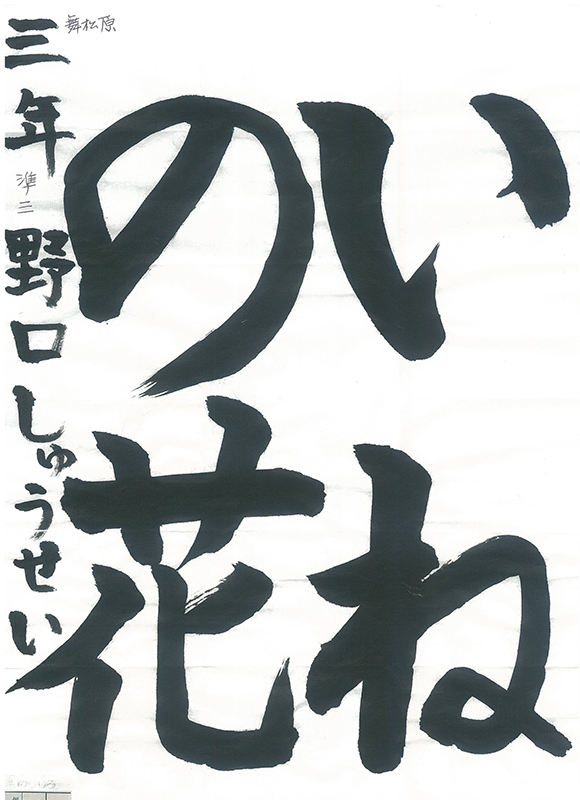 いね
の花
三年 野口しゅうせい
舞松原
準三